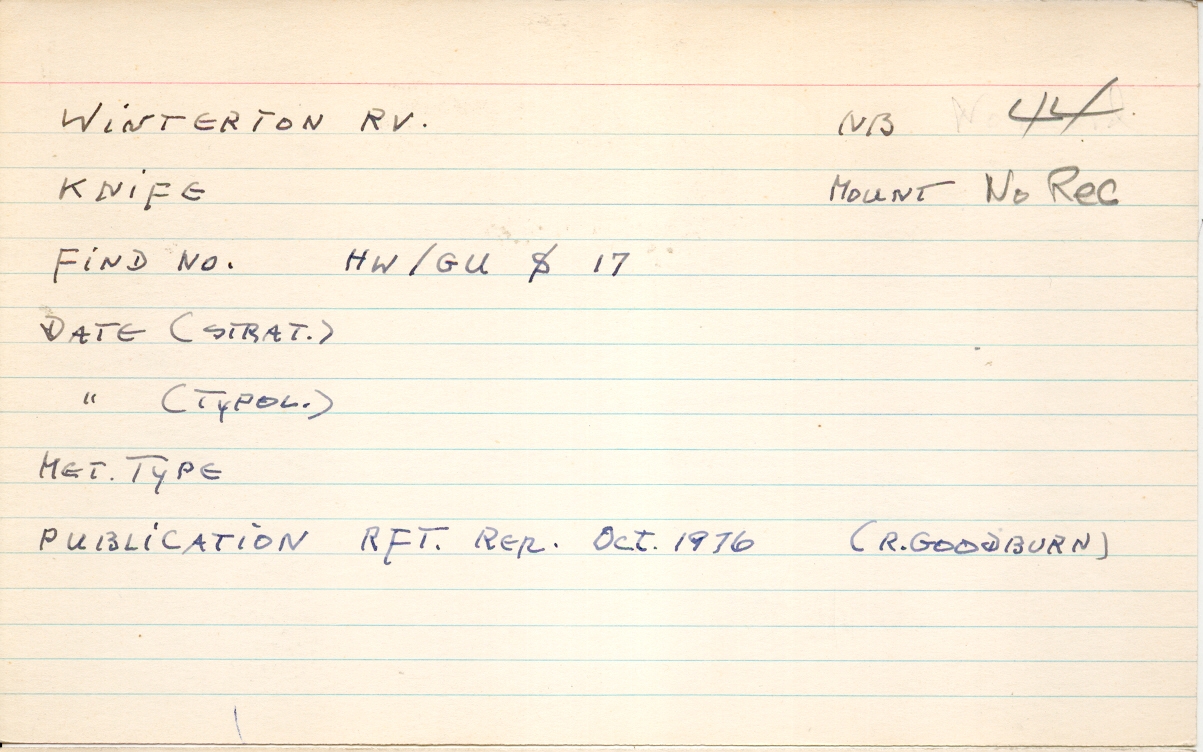 WINTERTON RV. NB 44
KNIFE MOUNT No Rec
FIND NO. HW/GU $ 17
DATE (STRAT.)
" (TYPOL.)
MET. TYPE
PUBLICATION RFT. REP. OCT. 1976 (R.GOODBURN)